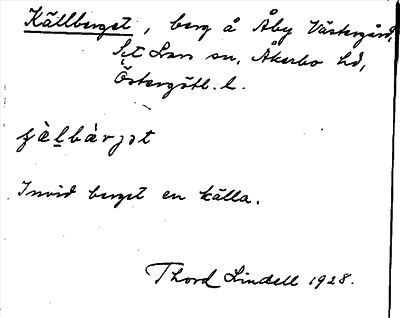 Källberget, berg å Åby Västergård,
S:t Lars sn, Åkerbo hd,
Östergötl. l.
fɛ̀lbæ̀rjət
Invid berget en källa.
Thord Lindell 1928.